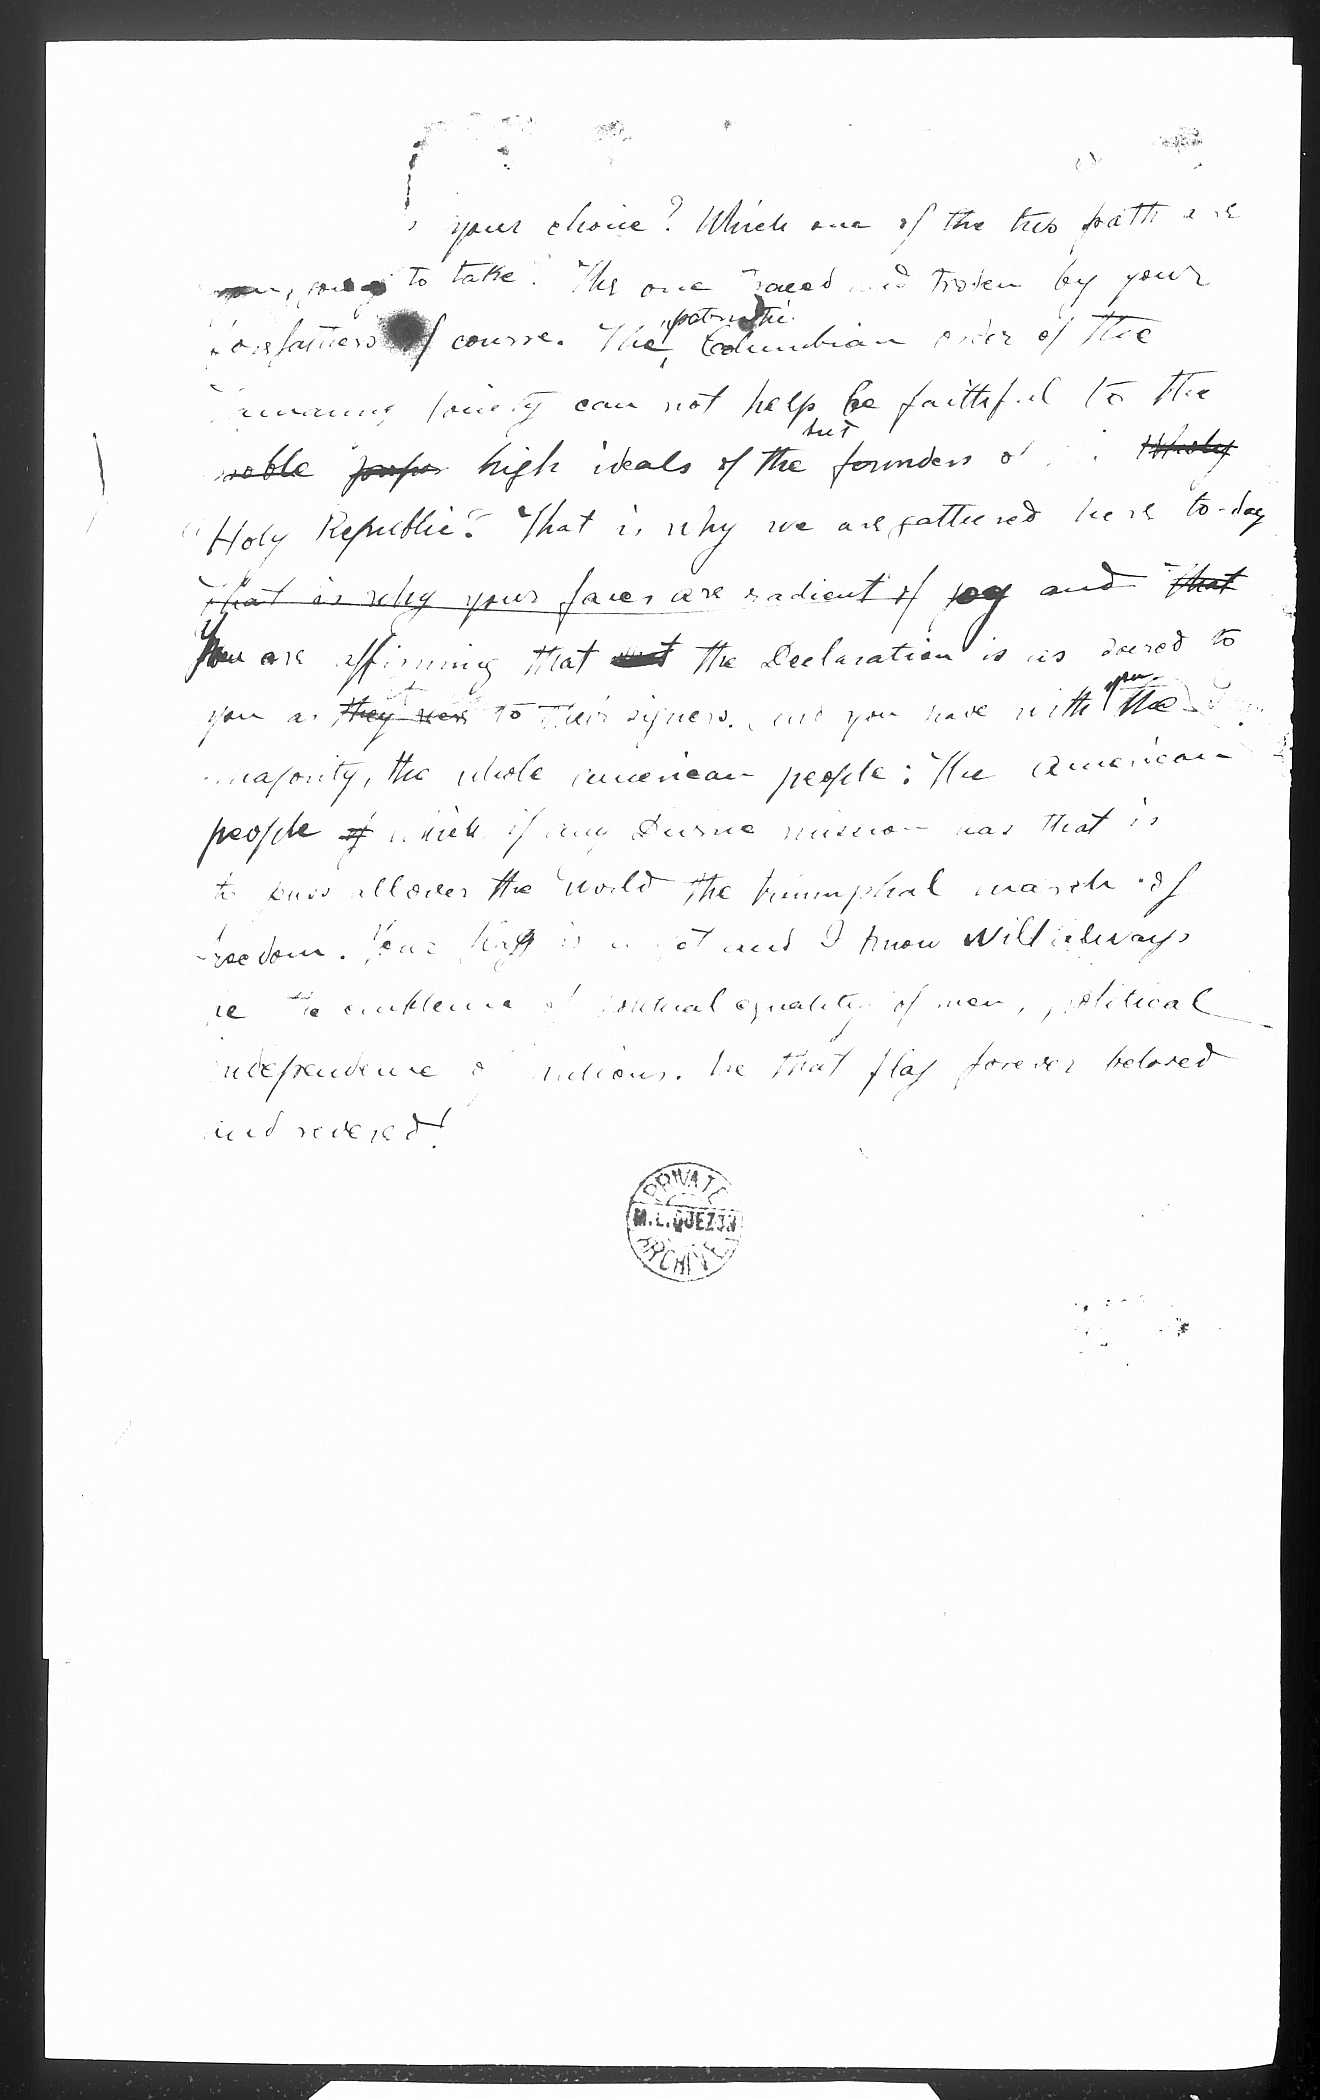 your choice? Which one of the two path are
going to take? The one traced and troden by your
forefathers of course. The patriotic Columbian order of the
Tammany society can not help but be faithful to the
noble high ideals of the founders of Wholy
"Holy Republic". That is why we are gathered here to-day
that is why your faces are radient of joy and that
You are affirming that the Declaration is as sacred to
you as they were to their signers. And you have with you the
majority, the whole american people: The American
people of which if any Divine mission has that is
to pass allover the world the triumphal march of
freedom. Your flag is and I know will always
be the embleme of equality of men, political
independence of nations. be that flag forever beloved
and revered!
PRIVATE
M.L.QUEZON
ARCHIVE